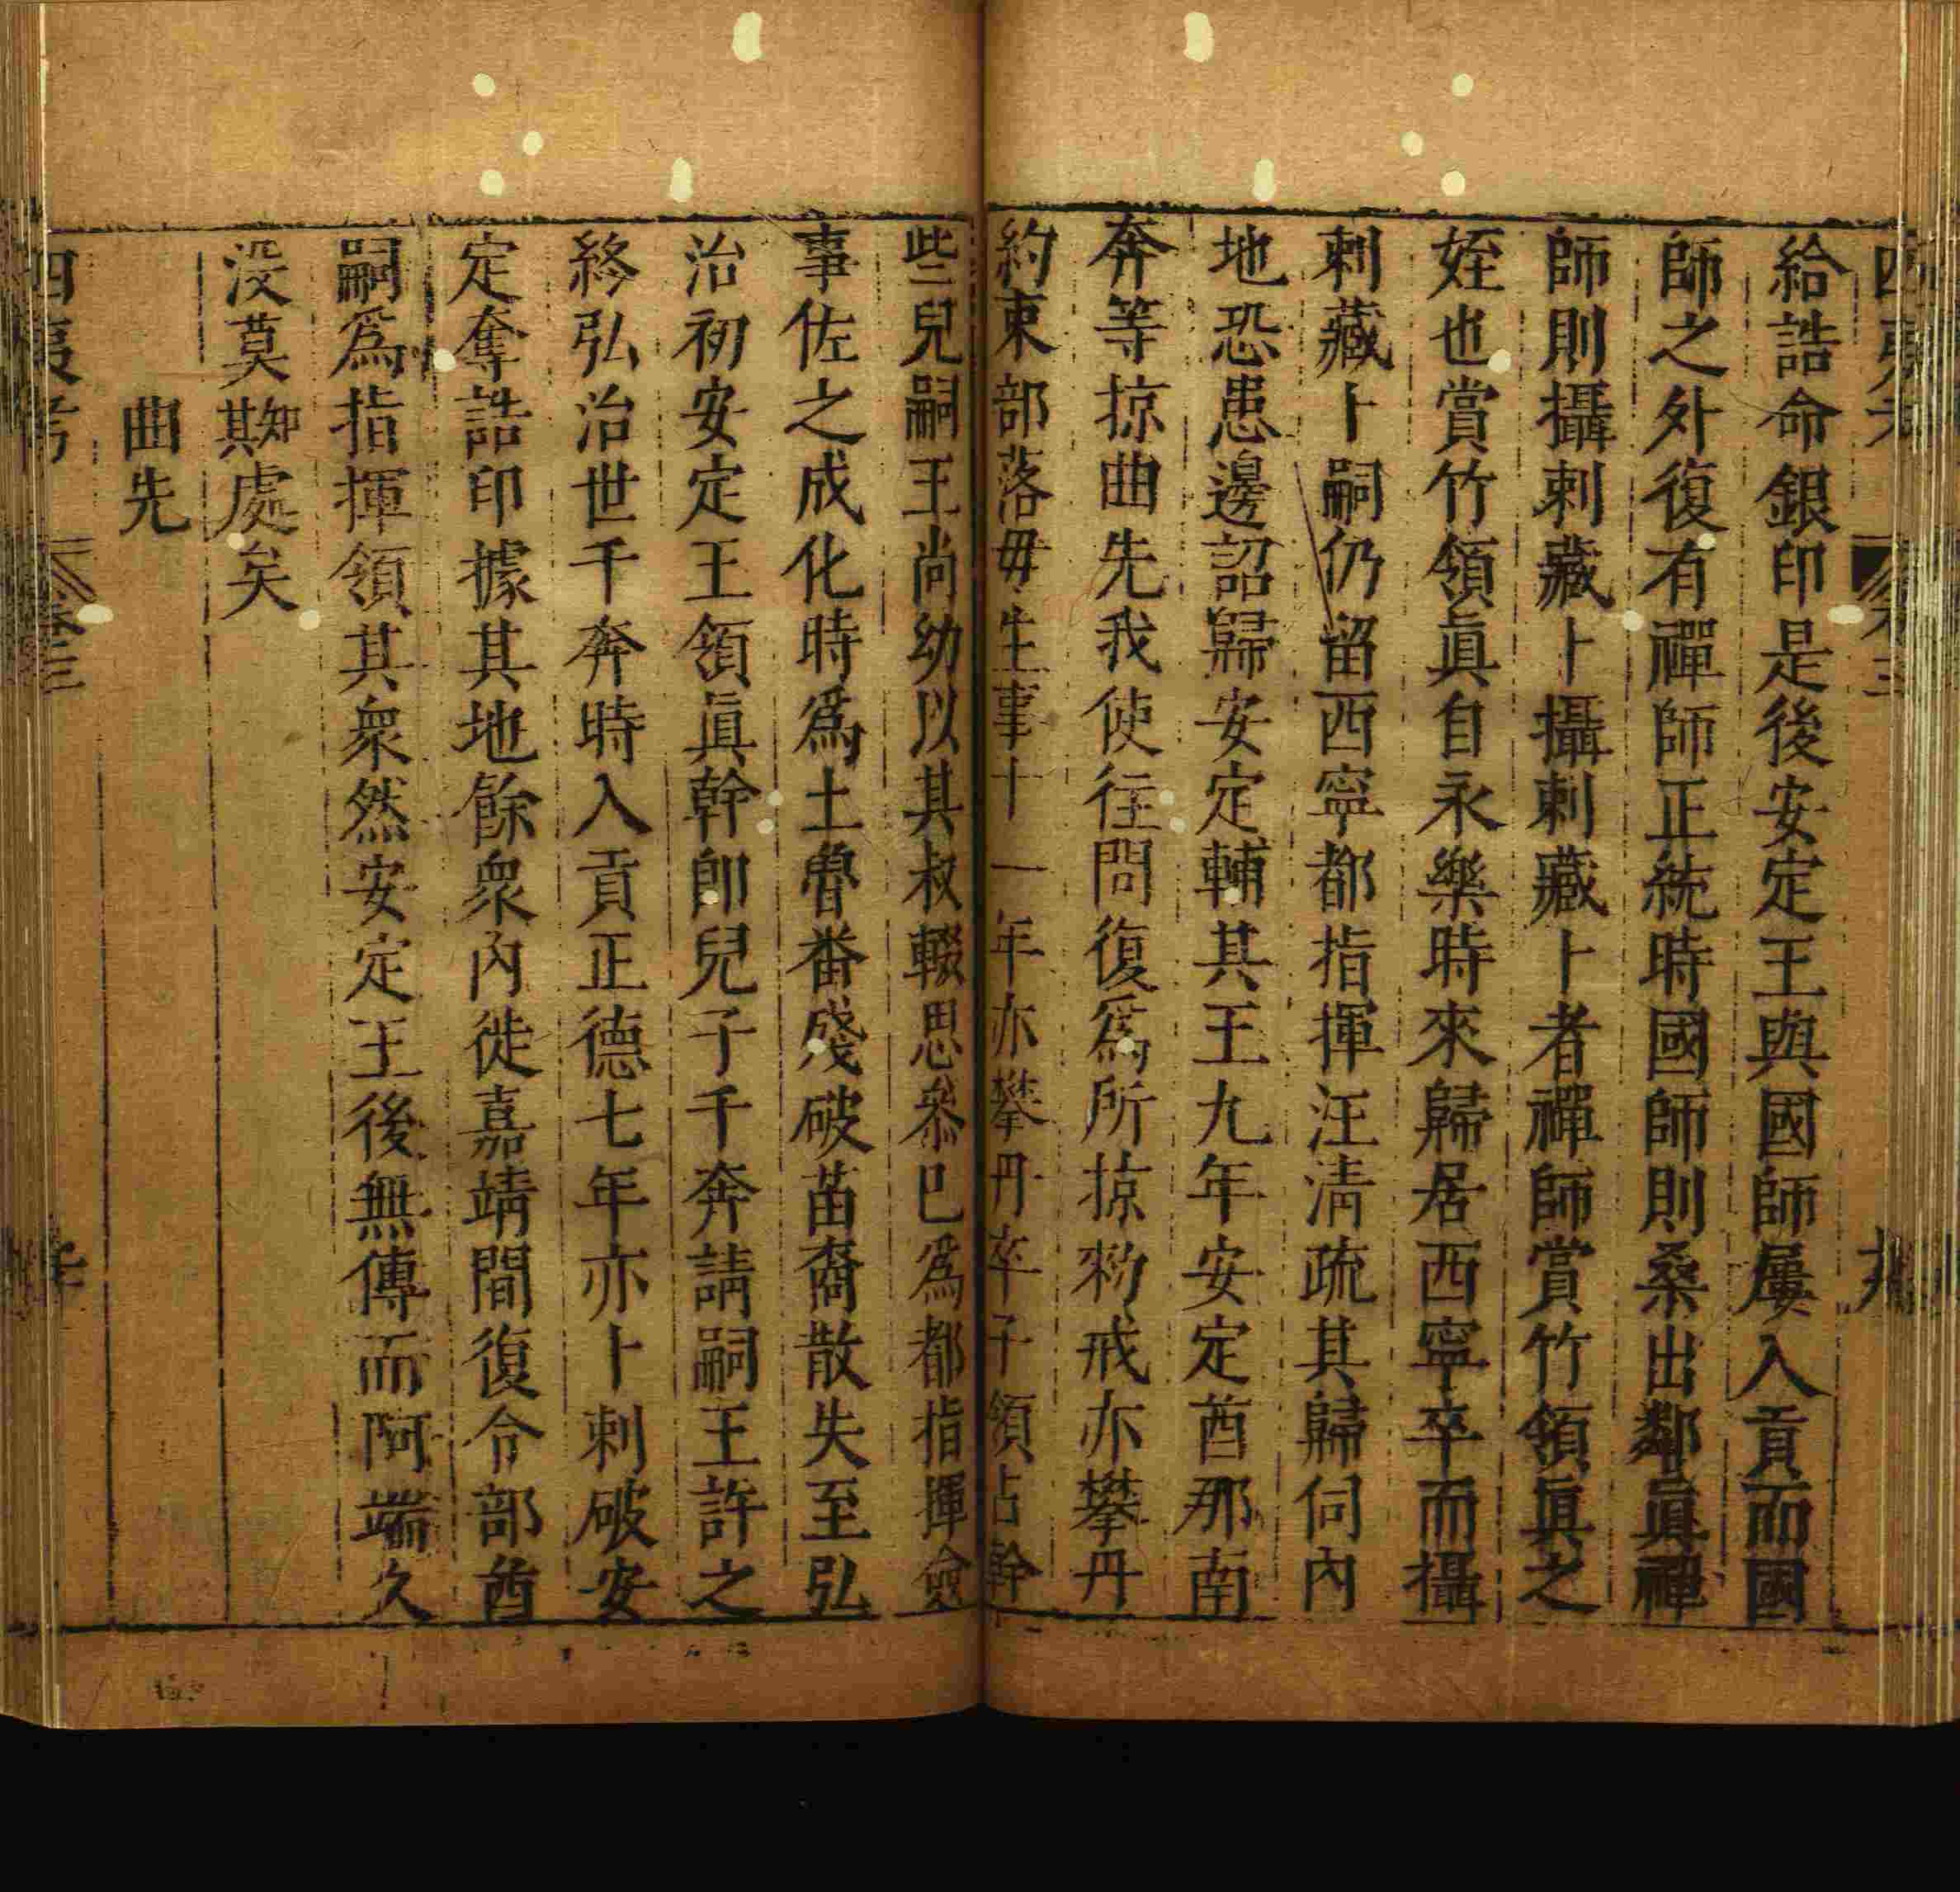 四夷考 卷三
給誥命銀印是後安定王與國師屢入貢而國
師之外復有禪師正統時國師則桑出鄰眞禪
師則攝剌藏卜攝剌藏卜者禪師賞竹領眞之
姪也賞竹領眞自永樂時來歸居西寧卒而攝
剌藏卜嗣仍留西寧都指揮汪清疏其歸伺內
地恐患邊詔歸安定輔其王九年安定酋那南
奔等掠曲先我使往問復爲所掠勑戒亦攀丹
約束部落毋生事十一年亦攀丹卒子領占幹
些兒嗣王尚幼以其叔輟思叅巴爲都指揮僉
事佐之成化時爲土魯番殘破苗裔散失至弘
治初安定王領眞幹卽兒子千奔請嗣王許之
終弘治世千奔時入貢正德七年亦卜剌破安
定奪誥印據其地餘衆內徙嘉靖間復令部酋
嗣爲指揮領其衆然安定王後無傳而阿端久
没莫知其處矣
曲先
四夷考 卷三